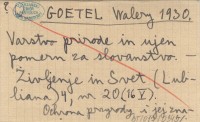 ?
GOETEL Walery 1930.
Varstvo prirode in njen
pomen za slovanstvo. —
Življenje in Svet (Lub-
liana) 4, nr 20 (16 V).
Ochrona przyrody i jej zna-